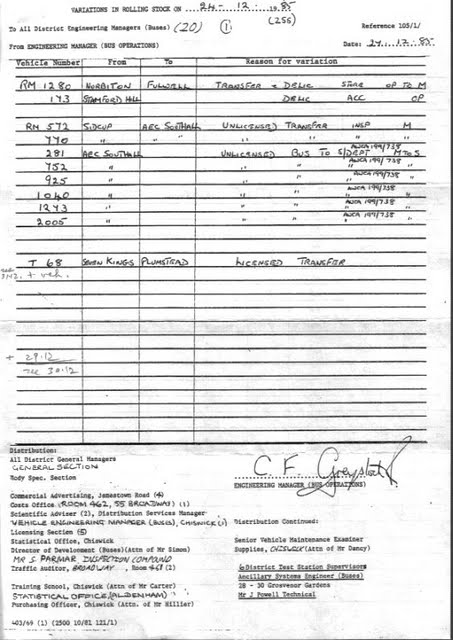 VARIATIONS IN ROLLING STOCK ON 24-12-1985
(256)
To All District Engineering Managers (Buses) (20) (1) Reference 105/1/
From ENGINEERING MANAGER (BUS OPERATIONS) Date: 24.12.85
Vehicle Number From To Reason for variation
RM 1280 NORBITON FULWELL TRANSFER & DELIC STORE OP TO M
143 STAMFORD HILL DELIC ACC OP
RM 572 SIDCUP AEC SOUTHALL UNLICENSED TRANSFER INSP M
770 " " " " " "
281 AEC SOUTHALL UNLICENSED BUS TO S/DEPT M TO S
AWCA 199/738
752 " " " " "
AWCA 199/738
925 " " " " "
AWCA 199/738
1040 " " " " "
AWCA 199/738
1243 " " " " "
AWCA 199/738
2005 " " " "
T 68 SEVEN KINGS PLUMSTEAD LICENSED TRANSFER
31.12. + veh.
+ 29.12
Tue 30.12
Distribution:
All District General Managers
GENERAL SECTION
Body Spec. Section
C. F.
ENGINEERING MANAGER (BUS OPERATIONS)
Commercial Advertising, Jamestown Road (4)
Costs Office (ROOM 462, 55 BROADWAY) (1)
Scientific Adviser (2), Distribution Services Manager
VEHICLE ENGINEERING MANAGER (BUSES), CHISWICK (1)
Licensing Section (5)
Statistical Office, Chiswick
Director of Development (Buses)(Attn of Mr Simon)
MR S PARMAR, INSPECTION COMPOUND
Traffic Auditor, BROADWAY, Room (2)
Training School, Chiswick (Attn of Mr Carter)
STATISTICAL OFFICE (ALDENHAM)
Purchasing Officer, Chiswick (Attn of Mr Hillier)
Distribution Continued:
Senior Vehicle Maintenance Examiner
Supplies, CHISWICK (Attn of Mr Dancy)
6 District Test Station Supervisors
Ancillary Systems Engineer (Buses)
28 - 30 Grosvenor Gardens
Mr J Powell Technical
403/69 (1) (2500 10/81 121/1)